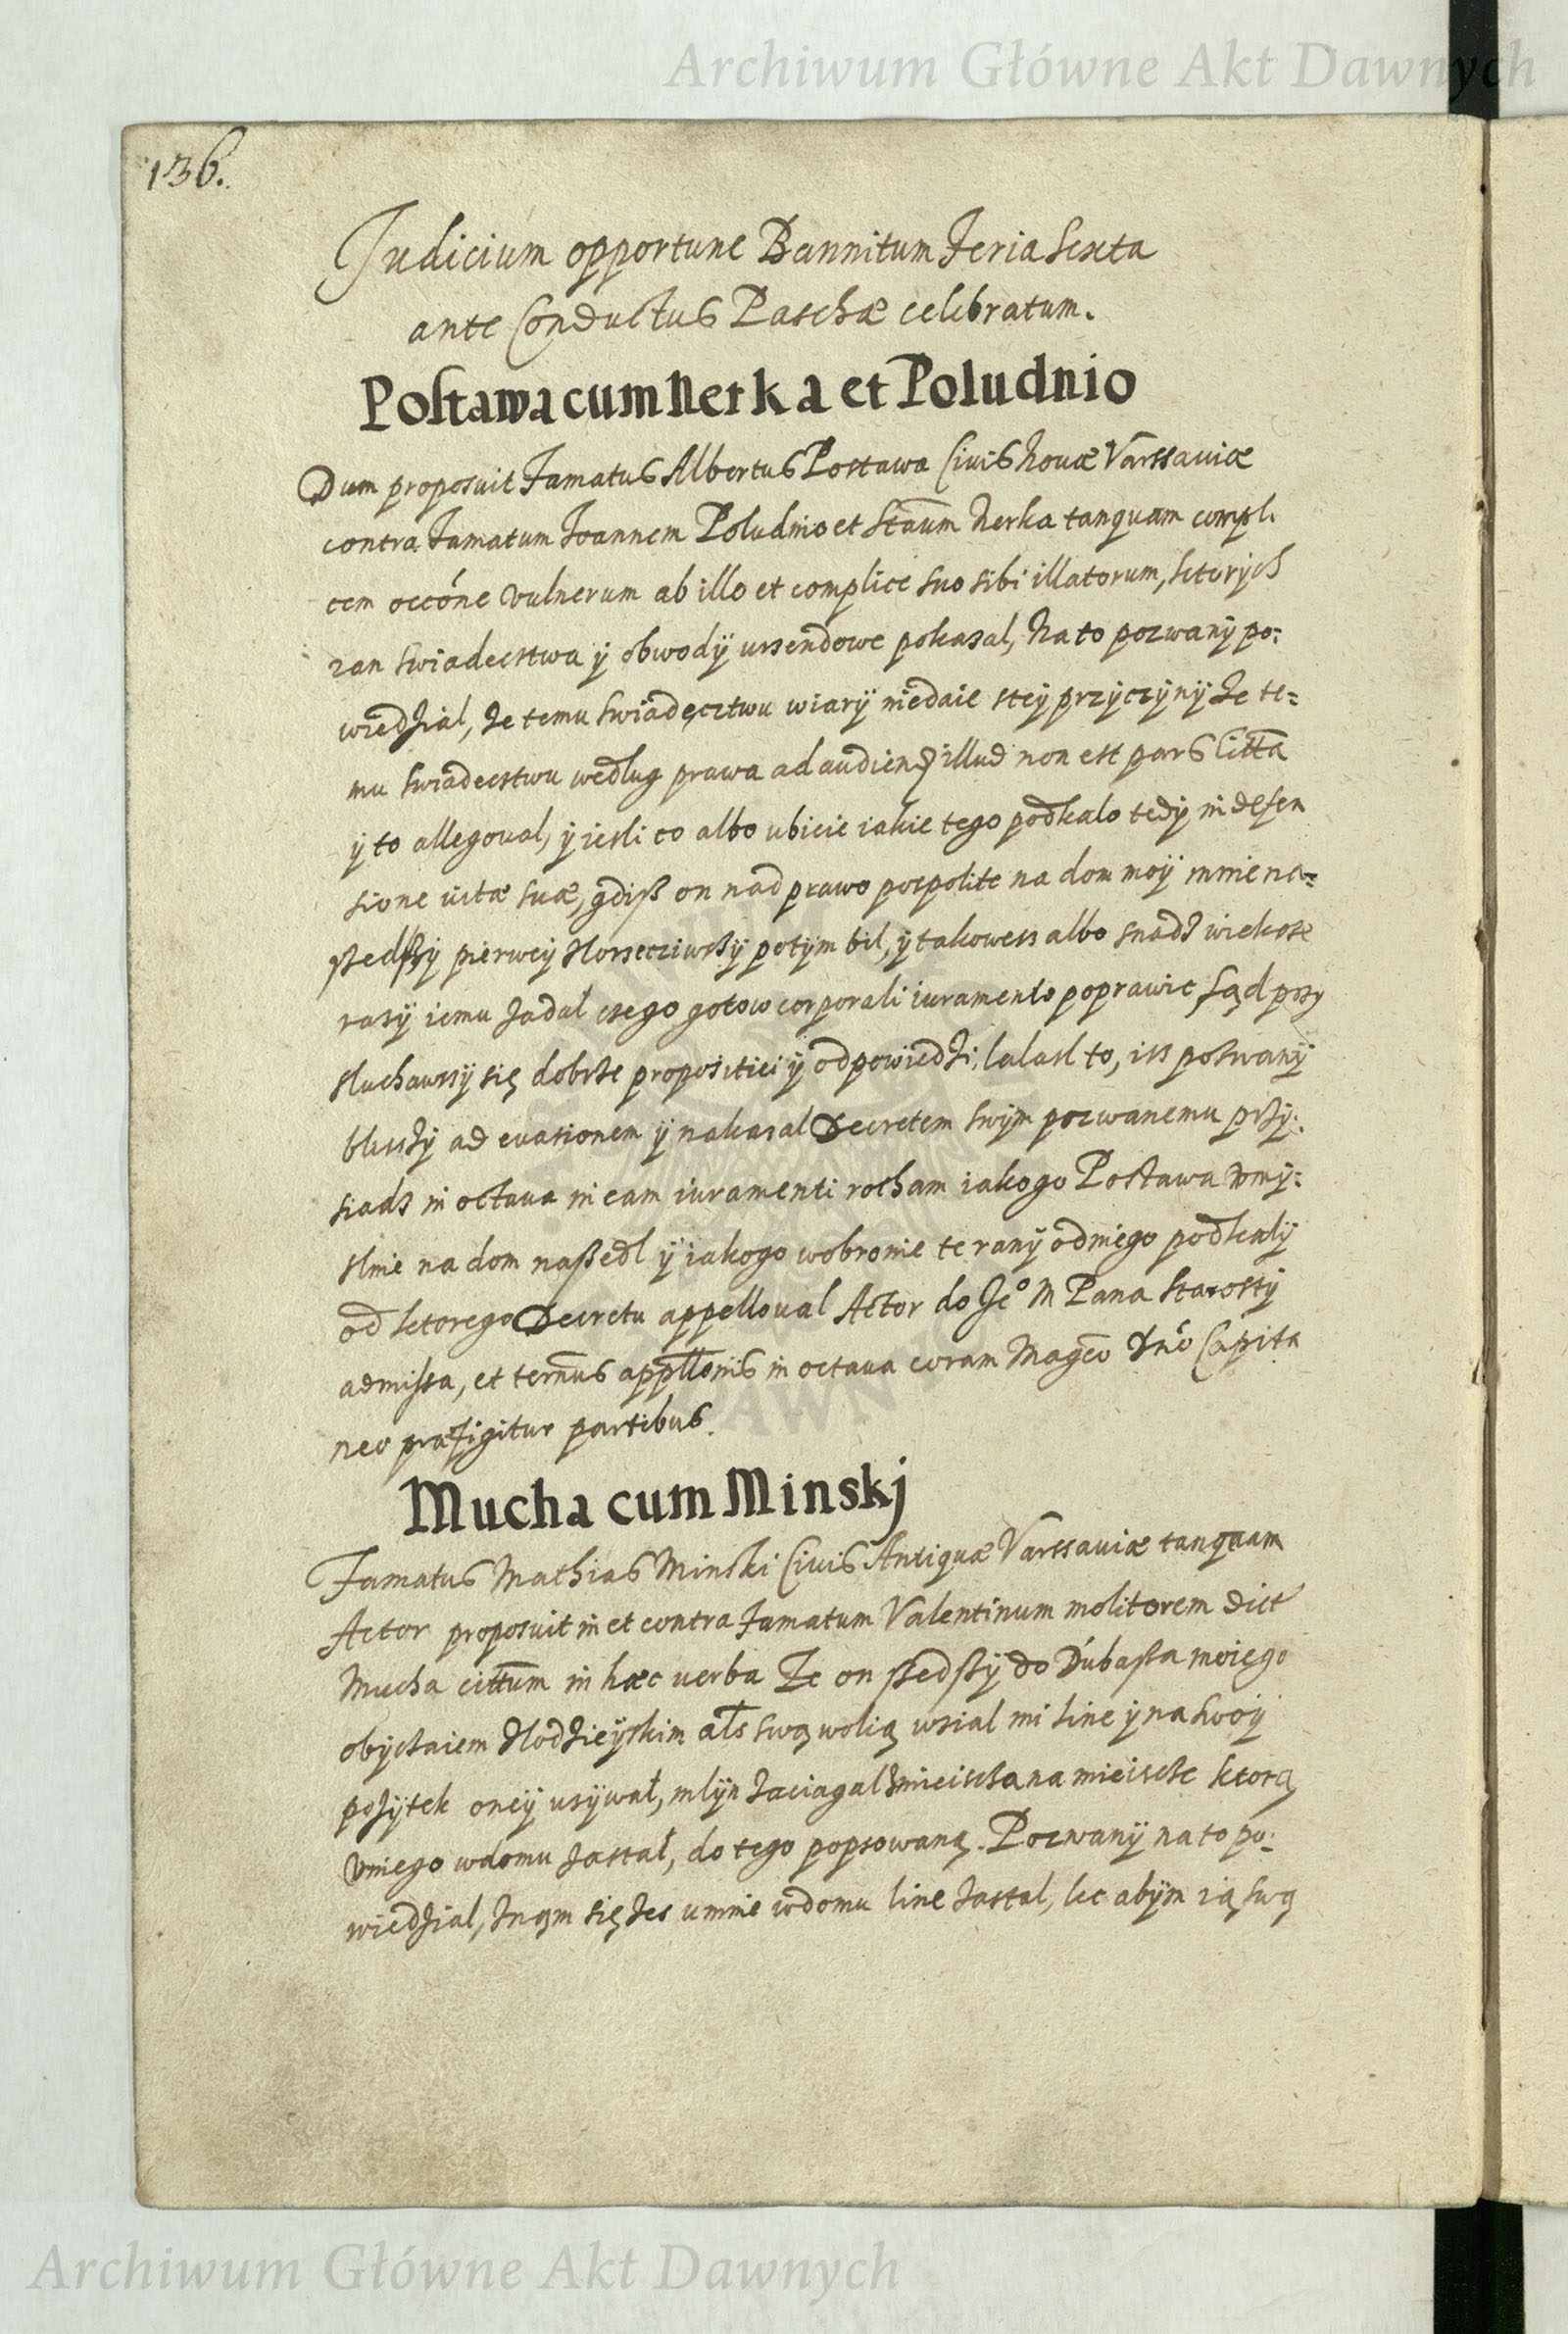 Archiwum Główne Akt Dawnych
136.
Judicium opportune Bannitum Feria Sexta
ante Conductus Paschæ celebratum.
Postawa cum Nerka et Poludnio
Dum proposuit Famatus Albertus Postawa Civis Novæ Varssaviæ
contra Famatum Joannem Poludnio et Staum Nerka tanquam compl.
cem occóne vulnerum ab illo et complice suo sibi illatorum, ktorych
ran swiadectwa ÿ obwodÿ urzendowe pokazal, Na to pozwanÿ po:
wiedzial, ze temu swiadęcztwu wiarÿ niedaie steÿ przÿczÿnÿ ze te=
mu swiadectwu wedlug prawa ad audiend illud non est pars citta
ÿ to allegoual, ÿ iesli co albo ubicie iakie tego podkalo tedÿ in defen
sione vitæ suæ, gdiß on nad prawo pospolite na dom moÿ mnie na=
ßedßÿ pierweÿ potÿm bil, ÿ takowess albo snadz wieksze
razÿ iemu zadał czego gotow corporali iuramento poprawic Sąd przy
sluchawsÿ się dobrze propositiei ÿ odpowiedzi, to, iss pozwanÿ
blizszÿ ad euasionem ÿ nakazal Decretem swÿm pozwanemu przÿ:
siadz in octaua in eam iuramenti rotham iakogo Postawa vmÿ:
slnie na dom naßedl ÿ iakogo wobronie te ranÿ odniego podkalÿ
od ktorego Decretu appelloual Actor do Jeº M Pana Starostÿ
admissa, et termus appllonis in octaua coram Magco Dno Capita
neo præfigitur partibus.
Mucha cum Minskj
Famatus Mathias Minski Civis Antiquæ Varssaviæ tanquam
Actor proposuit in et contra Famatum Valentinum molitorem dict
Mucha cittum in hæc uerba Ze on ßedßÿ do Dubaßa moiego
obÿczaiem zlodzieÿskim als swą wolią wzial mi line ÿ na swoÿ
pozÿtek oneÿ uzÿwał, mlÿn zaciagal zmieiscza na mieiscze ktorą
vniego wdomu zastał, do tego popsowaną. Pozwanÿ na to po:
wiedzial, znam się zes umnie wdomu line zastal, lec abÿm ią swą
Archiwum Główne Akt Dawnych